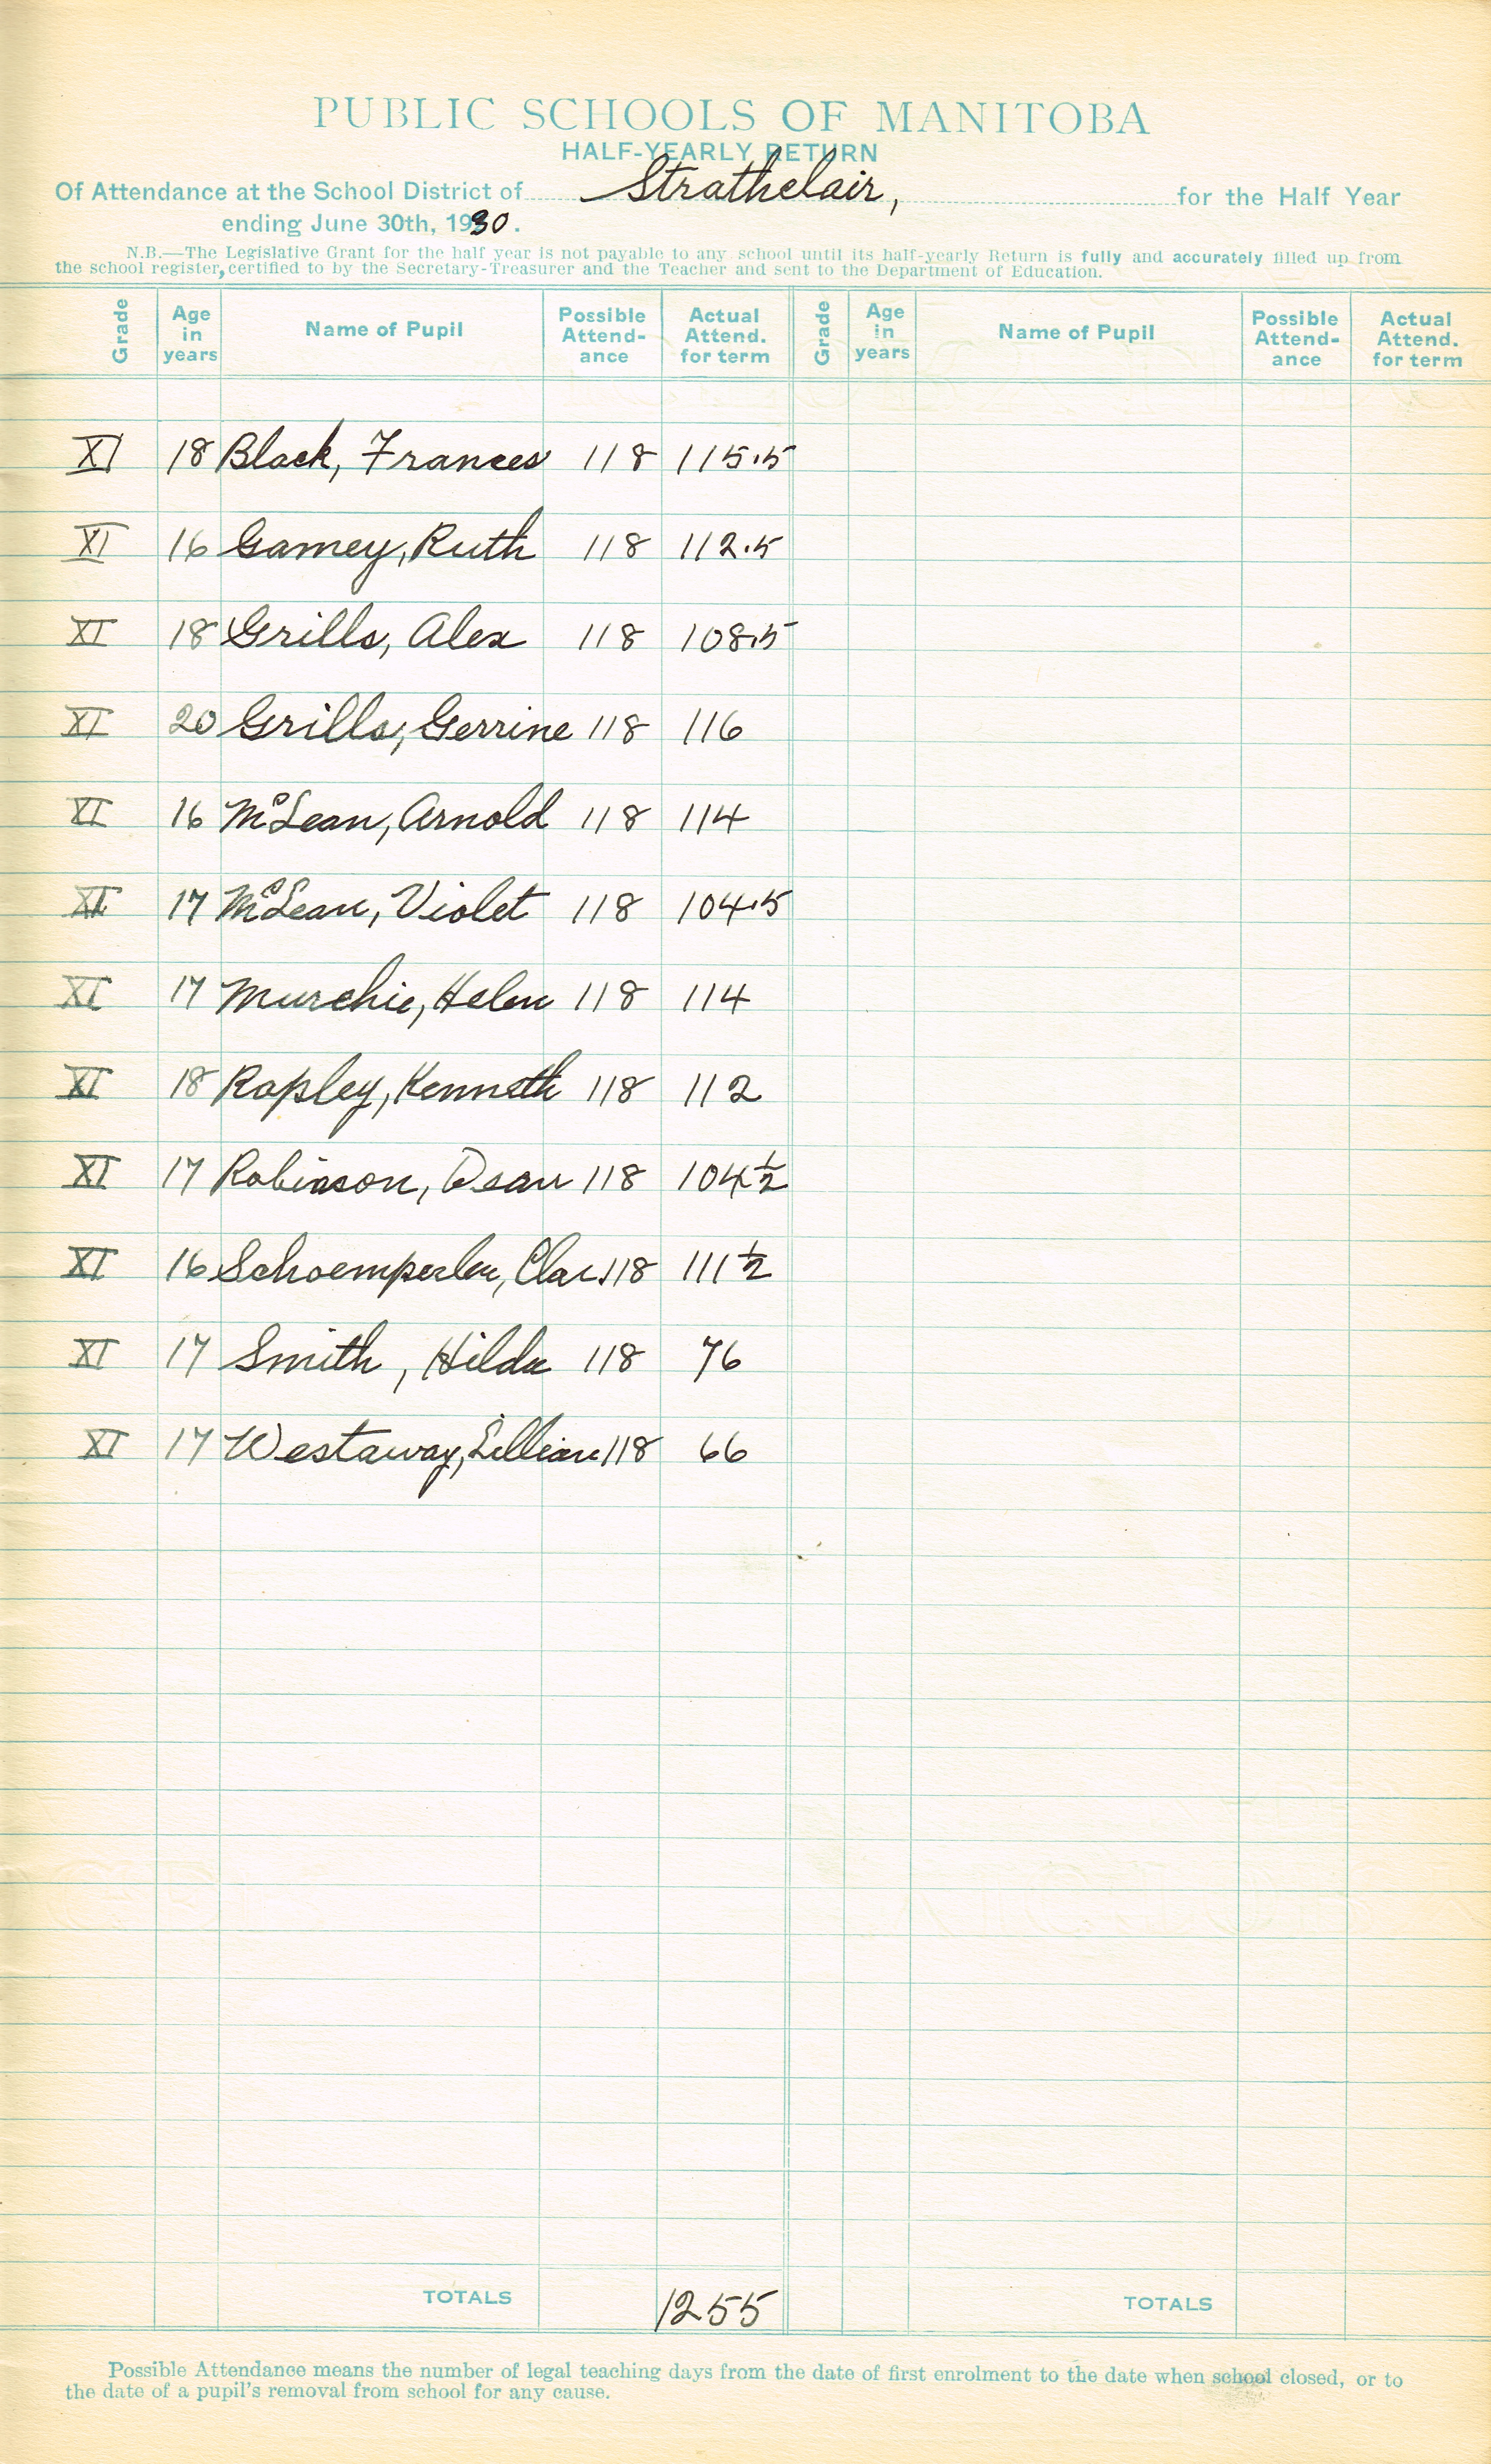 PUBLIC SCHOOLS OF MANITOBA
HALF-YEARLY RETURN
Of Attendance at the School District of Strathclair, for the Half Year
ending June 30th, 1930.
N.B.—The Legislative Grant for the half year is not payable to any school until its half-yearly Return is fully and accurately filled up from
the school register, certified to by the Secretary-Treasurer and the Teacher and sent to the Department of Education.
Grade Age in years Name of Pupil Possible Attend-ance Actual Attend. for term Grade Age in years Name of Pupil Possible Attend-ance Actual Attend. for term
XI 18 Black, Frances 118 115.5
XI 16 Gamey, Ruth 118 112.5
XI 18 Grills, Alex 118 108.5
XI 20 Grills, Gerrine 118 116
XI 16 McLean, Arnold 118 114
XI 17 McLean, Violet 118 104.5
XI 17 Murchie, Helen 118 114
XI 18 Rapley, Kenneth 118 112
XI 17 Robinson, Dean 118 104½
XI 16 Schoemperlen, Clar. 118 111½
XI 17 Smith, Hilda 118 76
XI 17 Westaway, Lillian 118 66
TOTALS 1255 TOTALS
Possible Attendance means the number of legal teaching days from the date of first enrolment to the date when school closed, or to
the date of a pupil's removal from school for any cause.